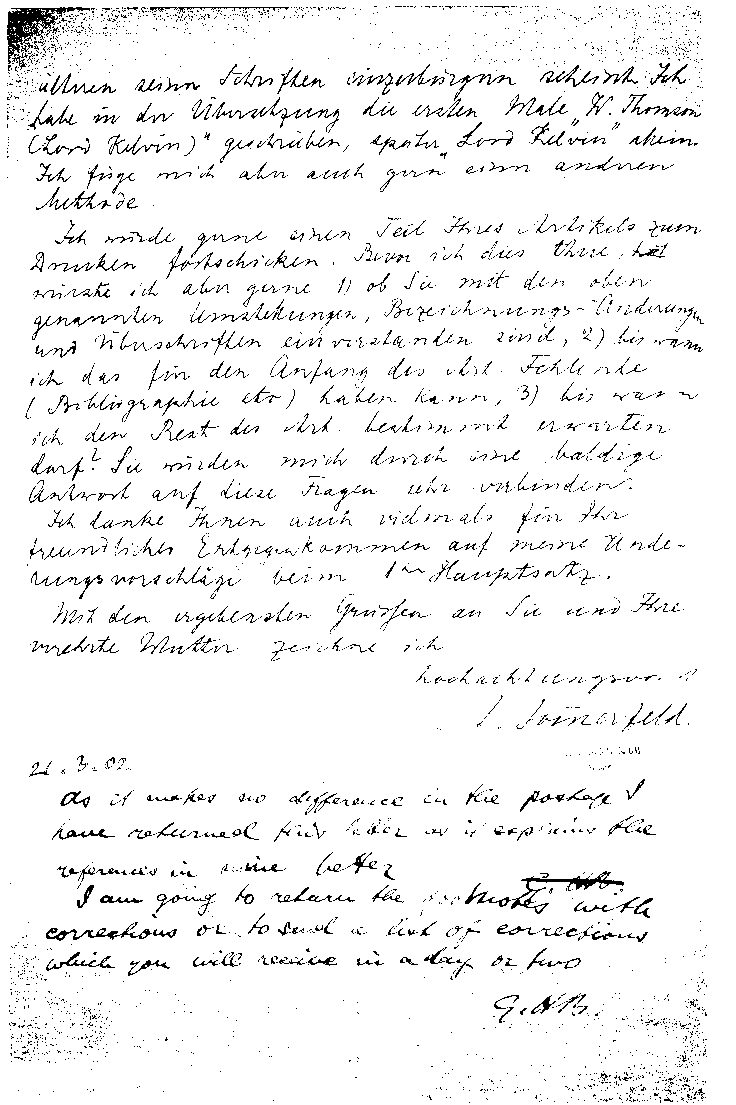 älteren seiner Schriften einzubürgern scheint. Ich
habe in der Übersetzung die ersten Male „W. Thomson
(Lord Kelvin)" geschrieben, später „Lord Kelvin" allein.
Ich füge mich aber auch gern einer anderen
Methode.
Ich würde gerne einen Teil Ihres Artikels zum
Drucken fortschicken. Bevor ich dies thue,
wüsste ich aber gerne 1) ob Sie mit den oben
genannten Umstellungen, Bezeichnungs-Änderungen
und Überschriften einverstanden sind, 2) bis wann
ich das für den Anfang des Art. Fehlende
(Bibliographie etc) haben kann, 3) bis wann
ich den Rest des Art. bestimmt erwarten
darf? Sie würden mich durch eine baldige
Antwort auf diese Fragen sehr verbinden.
Ich danke Ihnen auch vielmals für Ihr
freundliches Entgegenkommen auf meine Ände-
rungsvorschläge beim 1ten Hauptsatz.
Mit den ergebensten Grüssen an Sie und Ihre
verehrte Mutter zeichne ich
hochachtungsvoll
A. Sommerfeld.
21.3.02
As it makes no difference in the postage I
have returned this letter as it explains the
references in mine better
G.H.B.
I am going to return the with
corrections or to send a list of corrections
which you will receive in a day or two
G.H.B.